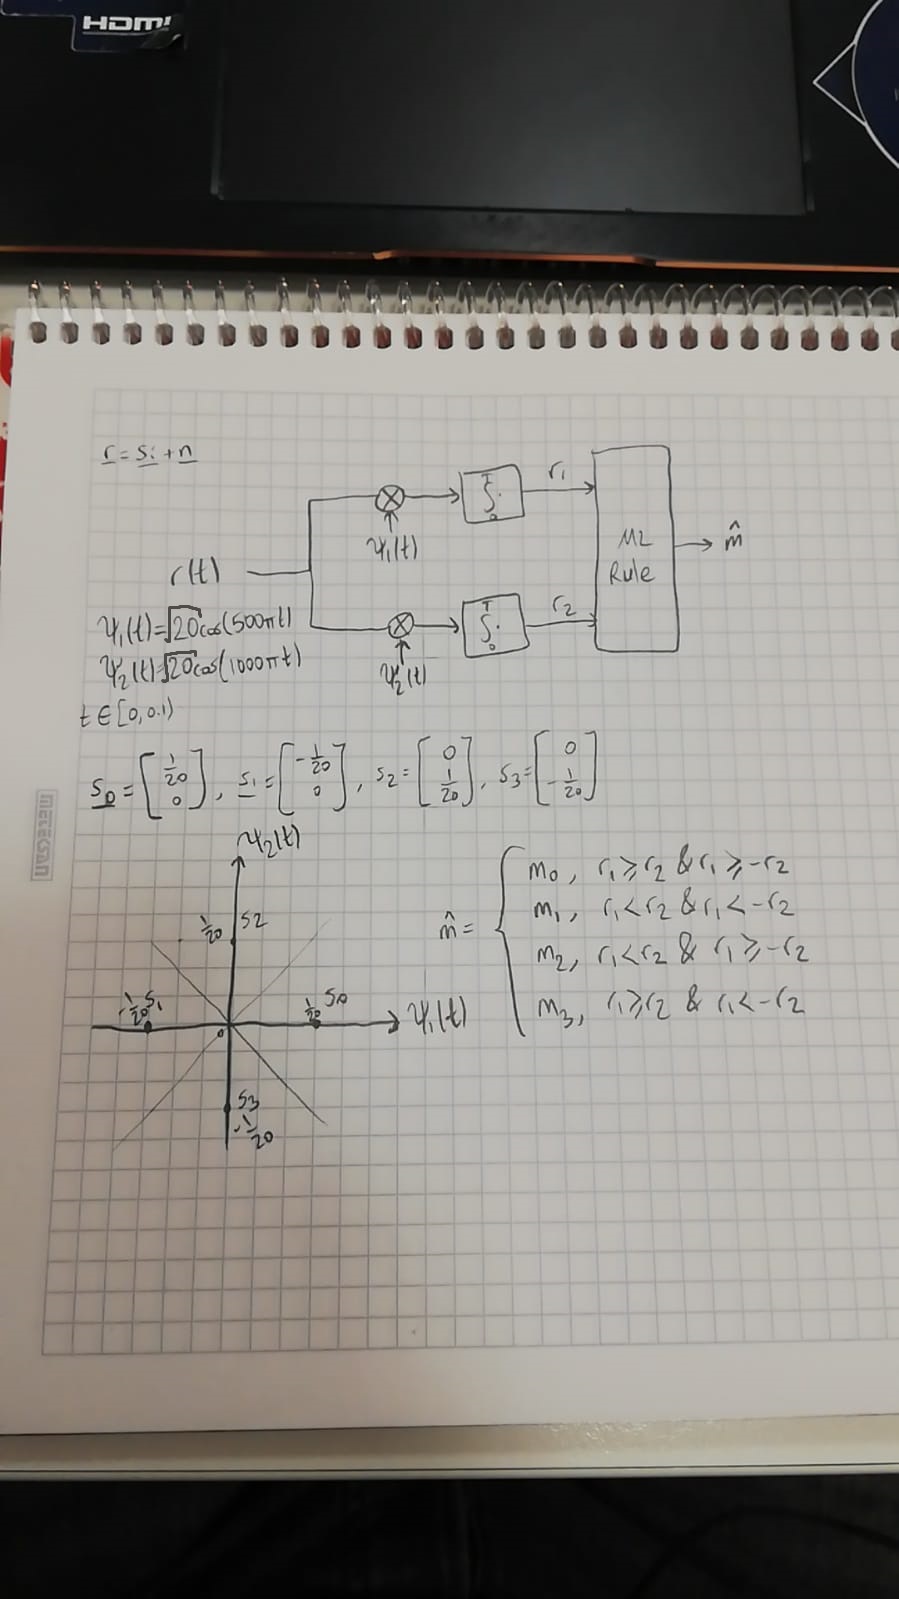 HDMI
r = si + n
r1
ψ1(t)
ML
Rule
m̂
r(t)
r2
ψ2(t)
ψ1(t)=√20cos(500πt)
ψ2(t)=√20cos(1000πt)
t ∈ [0, 0.1)
∫0T ·
∫0T ·
s0 = [1/20 0], s1 = [-1/20 0], s2 = [0 1/20], s3 = [0 -1/20]
ψ2(t)
1/20 s2
-1/20 s1
1/20 s0
ψ1(t)
0
s3
-1/20
m̂ = { m0, r1 ≥ r2 & r1 ≥ -r2
m1, r1 < r2 & r1 < -r2
m2, r1 < r2 & r1 ≥ -r2
m3, r1 ≥ r2 & r1 < -r2
METEKSAN